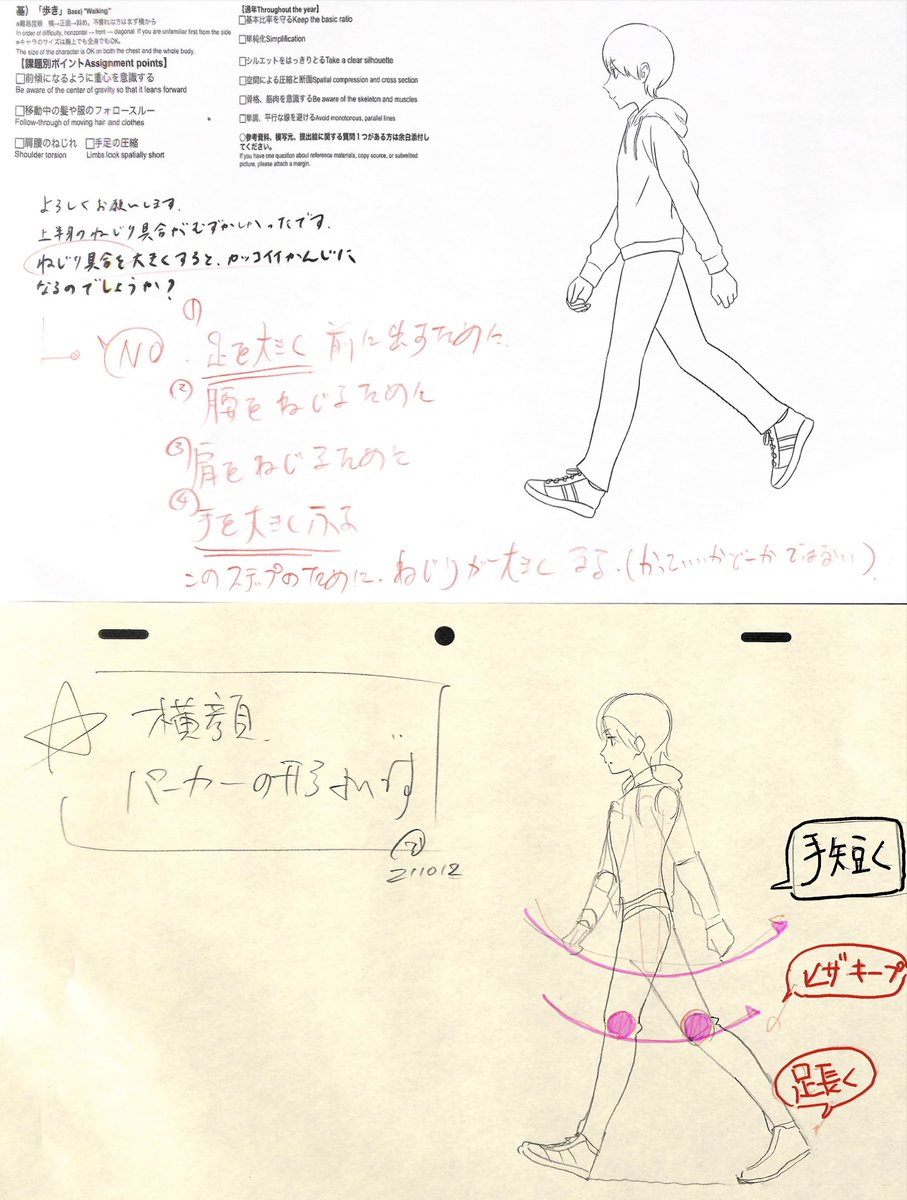 基）「歩き」Base) "Walking"
※難易度順　横→正面→斜め。不慣れな方はまず横から
In order of difficulty, horizontal → front → diagonal. If you are unfamiliar first from the side
※キャラのサイズは胸上でも全身でもOK。
The size of the character is OK on both the chest and the whole body.
【課題別ポイントAssignment points】
□前傾になるように重心を意識する
Be aware of the center of gravity so that it leans forward
□移動中の髪や服のフォロースルー
Follow-through of moving hair and clothes
□肩腰のねじれ　□手足の圧縮
Shoulder torsion　Limbs look spatially short
【通年Throughout the year】
□基本比率を守るKeep the basic ratio
□単純化Simplification
□シルエットをはっきりとるTake a clear silhouette
□空間による圧縮と断面Spatial compression and cross section
□骨格、筋肉を意識するBe aware of the skeleton and muscles
□単調、平行な線を避けるAvoid monotonous, parallel lines
○参考資料、模写元、提出絵に関する質問１つがある方は余白添付してください。
If you have one question about reference materials, copy source, or submitted picture, please attach a margin.
よろしくお願いします。
上半身のねじり具合がむずかしかったです。
ねじり具合を大きくすると、カッコイイかんじに
なるのでしょうか？
NO. ① 足を大きく 前に出すために
② 腰をねじるために
③ 肩をねじるために
④ 手を大きくふる
このステップのために、ねじりが大きくなる。(かっていいかどーかではない)
横顔
パーカーの形よいです
② 211012
手短く
ヒザキープ
足長く